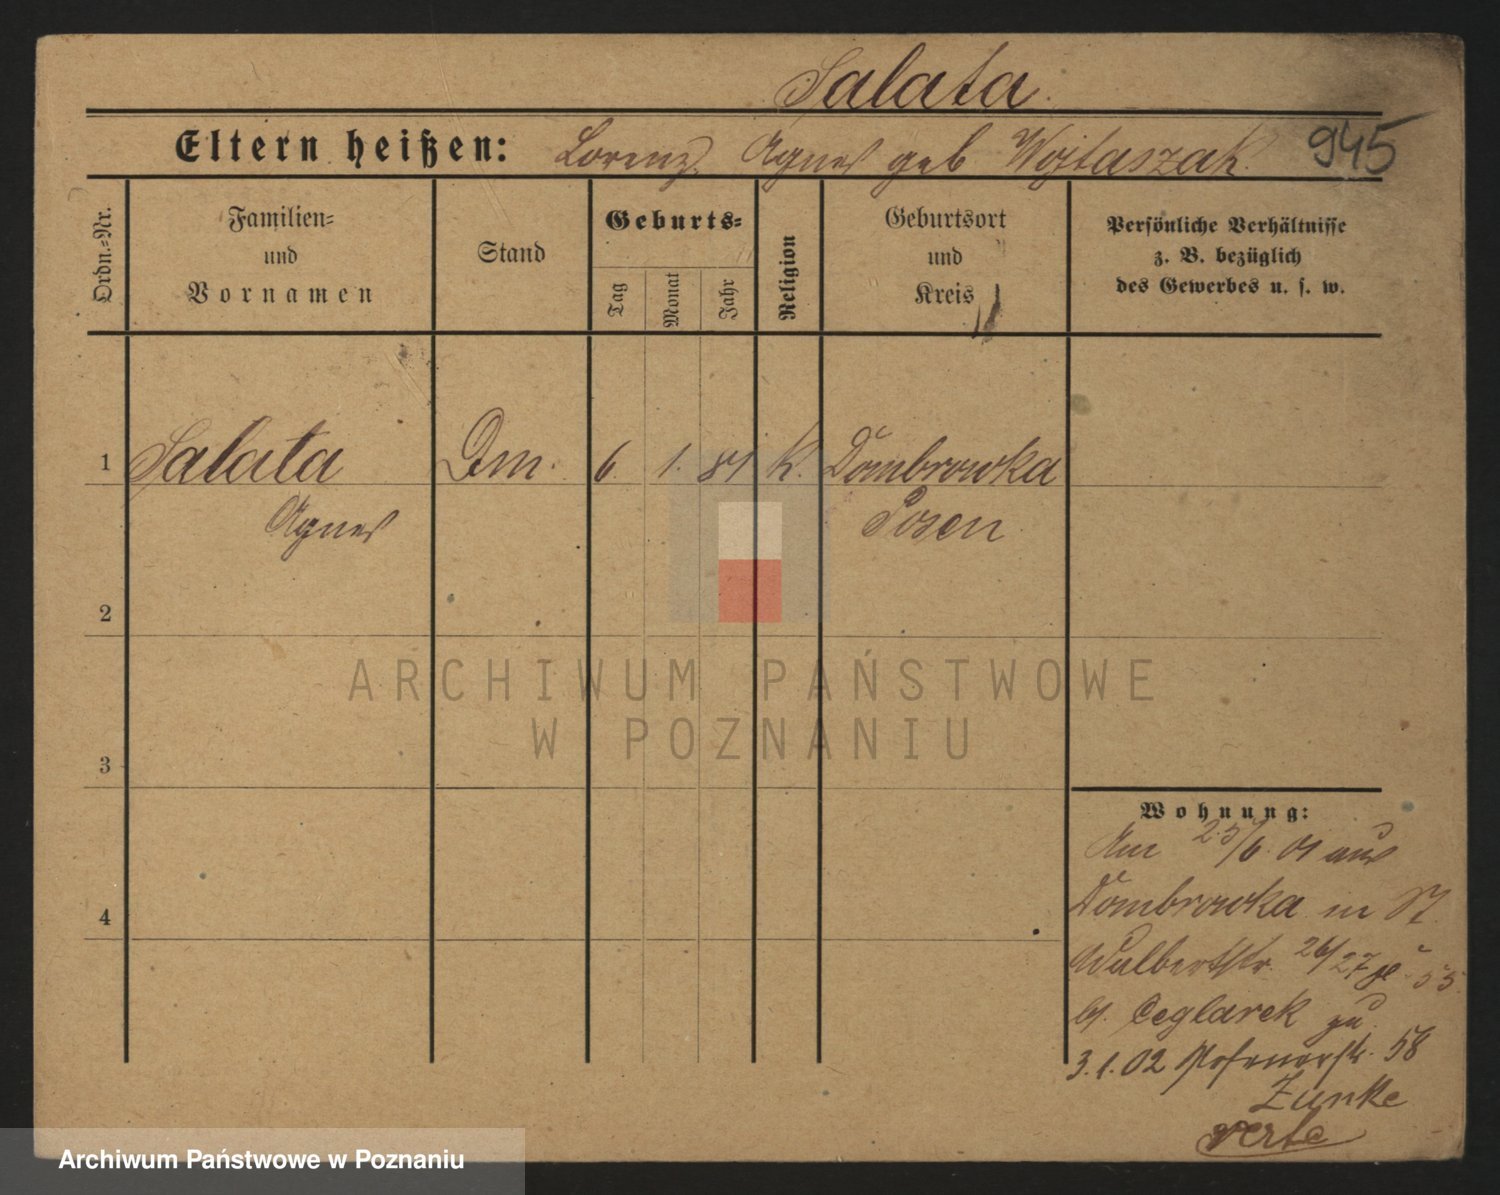 Salata
Eltern heißen: Lorenz, Agnes geb Wojtaszak
945
Ordn.-Nr.
Familien-
und
Vornamen
Stand
Geburts-
Tag
Monat
Jahr
Religion
Geburtsort
und
Kreis
Persönliche Verhältnisse
z. B. bezüglich
des Gewerbes u. s. w.
1 Salata Dm. 6 1. 81 K. Dombrowka
Agnes Posen
2
3
4
ARCHIWUM PAŃSTWOWE
W POZNANIU
Wohnung:
Am 25/6. 01 aus
Dombrowka in St
26/27
b/. Ceglarek zu
3.1.02 Posenerstr. 58
Zunke
verte
Archiwum Państwowe w Poznaniu